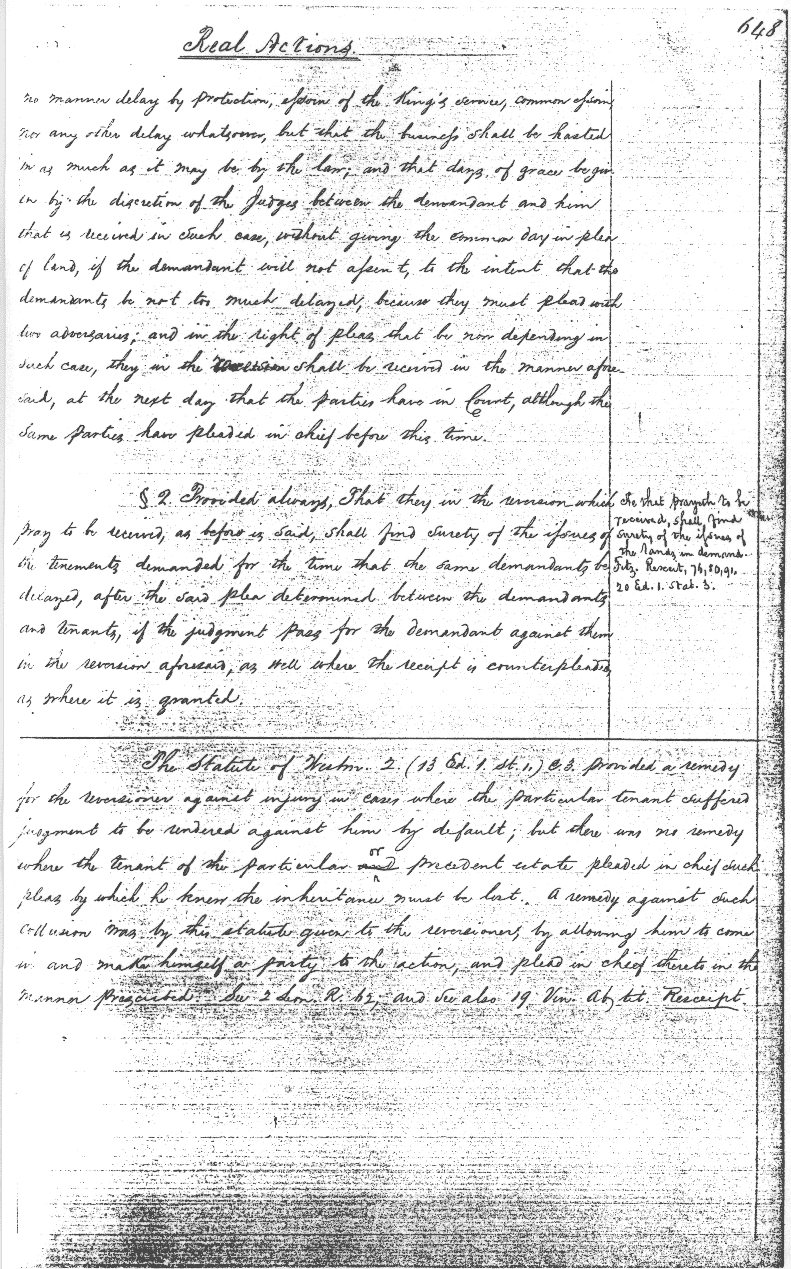 648
Real Actions.
no manner delay by protection, essoin of the King's service, common essoin
nor any other delay whatsoever, but that the business shall be hasted
in as much as it may be by the law; and that days of grace be giv-
en by the discretion of the Judges between the demandant and him
that is received in such case, without giving the common day in plea
of land, if the demandant will not assent, to the intent that the
demandants be not too much delayed, because they must plead with
two adversaries; and in the right of pleas that be now depending in
such case, they in the reversion shall be received in the manner afore-
said, at the next day that the parties have in Court, although the
same parties have pleaded in chief before this time.
§ 2. Provided always, That they in the reversion which
pray to be received, as before is said, shall find surety of the issues of
the tenements demanded for the time that the same demandants be
delayed, after the said plea determined between the demandants
and tenants, if the judgment pass for the demandant against them
in the reversion aforesaid, as well where the receipt is counterpleaded
as where it is granted.
He that prayeth to be
received, shall find
surety of the issues of
the lands in demand.
Fitz. Resceit, 76, 80, 91.
20 Ed. 1. Stat. 3.
The Statute of Westm. 2 (13 Ed. 1. st. 1.) C. 3. provided a remedy
for the reversioner against injury in cases where the particular tenant suffered
judgment to be rendered against him by default; but there was no remedy
or
where the tenant of the particular and precedent estate pleaded in chief such
pleas by which he knew the inheritance must be lost. A remedy against such
collusion was by this statute given to the reversioner, by allowing him to come
in and make himself a party to the action, and plead in chief thereto in the
manner prescribed. See 2 Leon. R. 62; and see also 19 Vin. Ab. tit. Resceipt.